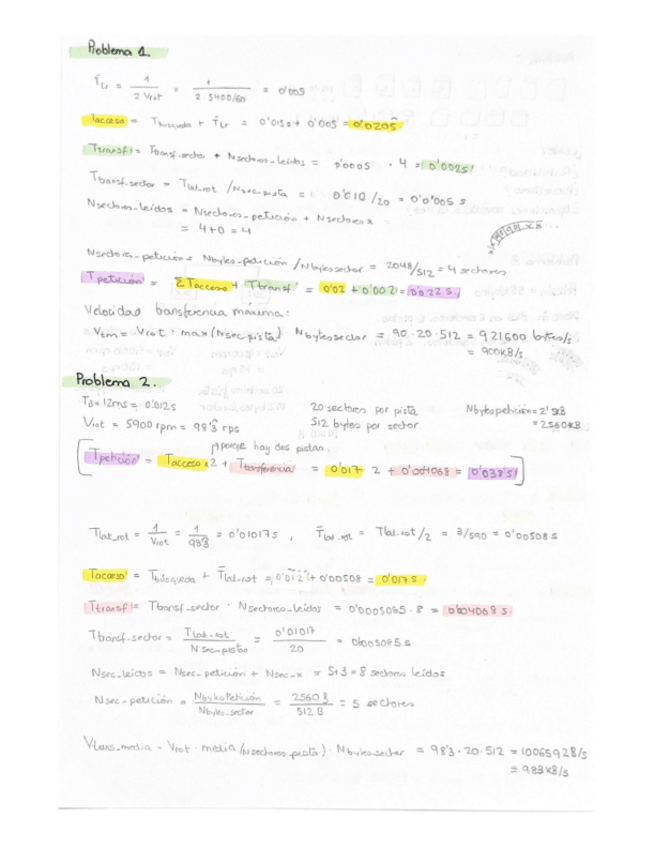 Problema 1
T̄Lr = 1 / 2 Vrot = 1 / 2·5400/60 = 0'005
Tacceso = Tbúsqueda + T̄Lr = 0'015s + 0'005 = 0'020s
Ttransf = Ttransf_sector + Nsectores_leídos = 0'0005 · 4 = 0'002s
Ttransf_sector = Tlat_rot / Nsec_pista = 0'010 / 20 = 0'0005 s
Nsectores_leídos = Nsectores_petición + Nsectores x
= 4+0 = 4
Nsectores_petición = Nbytes_petición / Nbytes sector = 2048/512 = 4 sectores
Tpetición = ΣTacceso + Ttransf = 0'02 + 0'002 = 0'022 s
Velocidad transferencia máxima:
Vtm = Vrot · max(Nsec_pista) · Nbytes sector = 90·20·512 = 921600 bytes/s
= 900KB/s
Problema 2.
TB = 12ms = 0'012s 20 sectores por pista Nbytes petición = 2'5KB
Vrot = 5900 rpm = 98'3 rps 512 bytes por sector = 2560KB
porque hay dos pistas
Tpetición = Tacceso · 2 + Ttransferencia = 0'017 · 2 + 0'004068 = 0'038 s
Tlat_rot = 1 / Vrot = 1 / 98'3 = 0'01017s , T̄lat_rot = Tlat_rot/2 = 3/590 = 0'00508 s
Tacceso = Tbúsqueda + T̄lat_rot = 0'012 + 0'00508 = 0'017 s
Ttransf = Ttransf_sector · Nsectores_leídos = 0'0005085 · 8 = 0'004068 s
Ttransf_sector = Tlat_rot / N sec_pistas = 0'01017 / 20 = 0'0005085 s
Nsec_leídos = Nsec_petición + Nsec_x = 5+3 = 8 sectores leídos
Nsec_petición = Nbytes Petición / Nbytes_sector = 2560 B / 512 B = 5 sectores
Vtrans_media = Vrot · media (Nsectores_pista) · Nbytes_sector = 98'3 · 20 · 512 = 1006592B/s
= 983KB/s